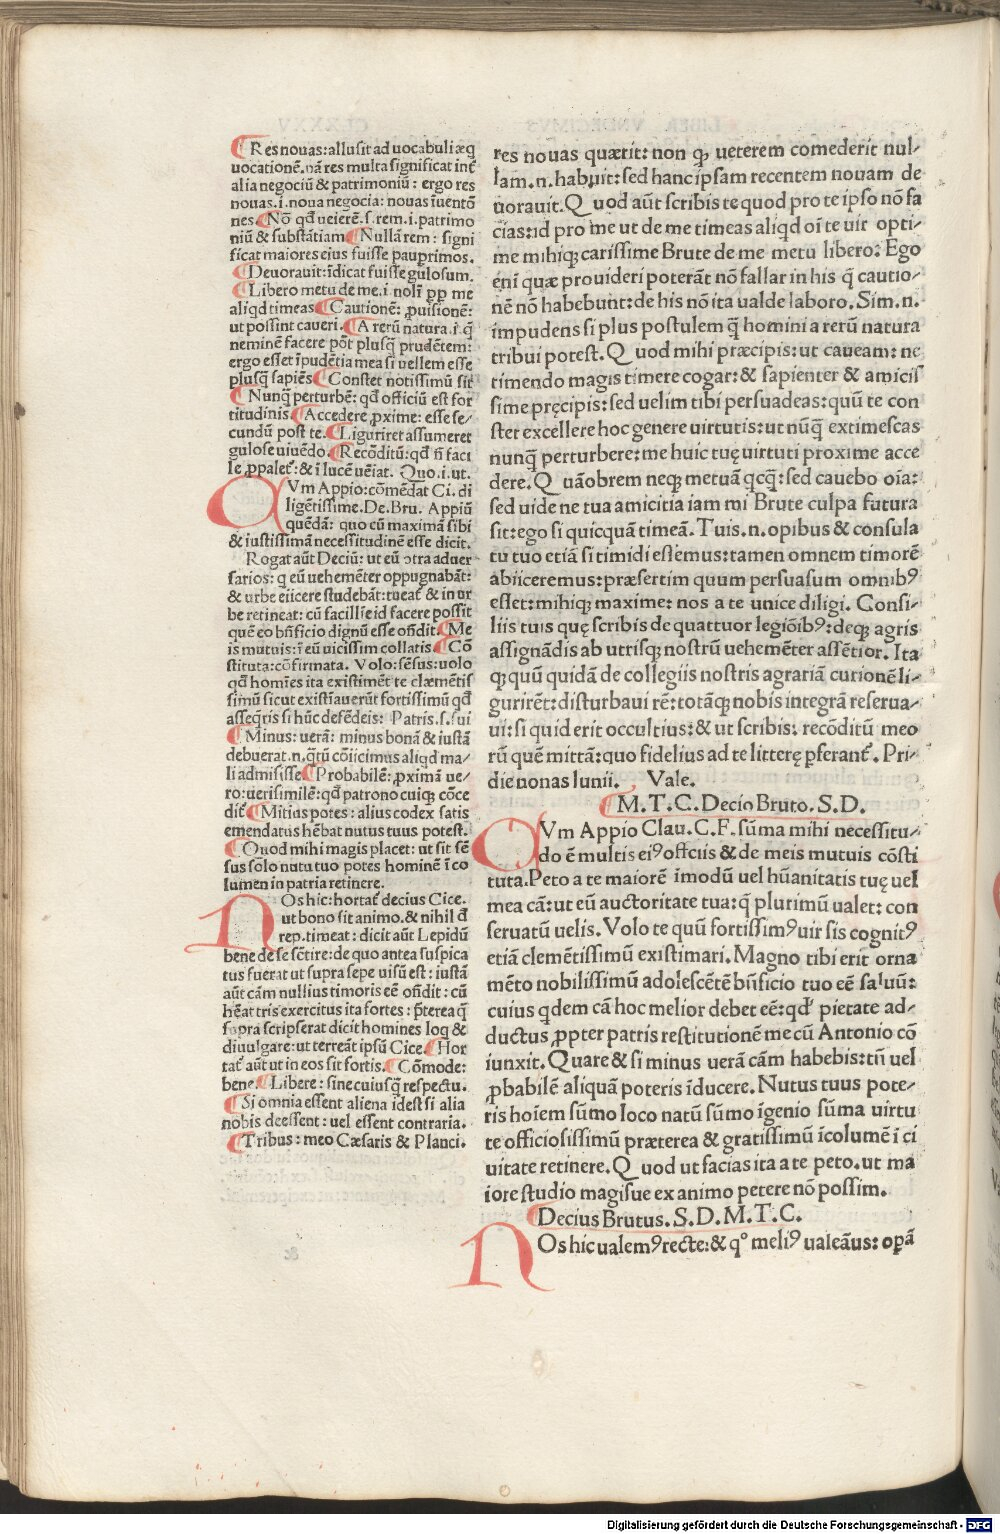 ¶ Res nouas: allusit ad uocabuli æq
uocationē. nā res multa significat int̄
alia negociū & patrimoniū: ergo res
nouas. i. noua negocia: nouas iuentō
nes ¶ Nō qđ ueterē. s. rem. i. patrimo
niū & substātiam ¶ Nullā rem: signi
ficat maiores eius fuisse pauprimos.
¶ Deuorauit: īdicat fuisse gulosum.
¶ Libero metu de me. i. noli pp me
aliqd timeas ¶ Cautionē: puisionē:
ut possint caueri. ¶ A rerū natura. i. q̄
neminē facere pōt plusq̄ prudētem:
ergo esset īpudētia mea si uellem esse
plusq̄ sapiēs ¶ Constet notissimū sit
¶ Nunq̄ perturbē: qđ officiū est for
titudinis ¶ Accedere pxime: esse se/
cundū post te. ¶ Liguriret assumeret
gulose uiuēdo. ¶ Recōditū: qđ n̄ faci
le ppalet᷑: & ī lucē uēiat. Quo. i. ut.
QVm Appio: cōmēdat Ci. di
ligētissime. De. Bru. Appiū
quēdā: quo cū maximā sibi
& iustissimā necessitudinē esse dicit.
Rogat aūt Deciū: ut eū ɔtra aduer
sarios: q eū uehemēter oppugnabāt:
& urbe eiicere studebāt: tueat᷑ & in ur
be retineat: cū facillīe id facere possit
quē eo bn̄ficio dignū esse on̄dit. ¶ Me
is mutuis: ī eū uicissim collatis ¶ Cō
stituta: cōfirmata. Volo: sēsus: uolo
qđ homīes ita existimēt te clæmētis
simū sicut existīauerūt fortissimū qđ
asseq̄ris si hūc defēdeis: Patris. s. sui
¶ Minus: uerā: minus bonā & iustā
debuerat. n. q̄tū cōiicimus aliqđ ma/
li admisisse ¶ Probabilē: pximā ue/
ro: uerisimilē: qđ patrono cuiq; cōce
dit᷑ ¶ Mitius potes: alius codex satis
emendatus hēbat nutus tuus potest.
¶ Quod mihi magis placet: ut sit sē
sus solo nutu tuo potes hominē īco
lumen in patria retinere.
NOs hic: hortat᷑ decius Cice.
ut bono sit animo. & nihil đ
rep. timeat: dicit aūt Lepidū
bene de se sētire: de quo antea suspica
tus fuerat ut supra sepe uisū est: iustā
aūt cām nullius timoris eē on̄dit: cū
hēat tris exercitus ita fortes: p̄terea q̄
supra scripserat dicit homines loq &
diuulgare: ut terreāt ipsū Cice. ¶ Hor
tat᷑ aūt ut in eos sit fortis. ¶ Cōmode:
bene. ¶ Libere: sine cuiusq̄ respectu.
¶ Si omnia essent aliena idest si alia
nobis deessent: uel essent contraria.
¶ Tribus: meo Cæsaris & Planci.
res nouas quærit: non q; ueterem comederit nul/
lam. n. habuit: sed hanc ipsam recentem nouam de
uorauit. Quod aūt scribis te quod pro te ipso nō fa
cias: id pro me ut de me timeas aliqd oī te uir opti/
me mihiq; carissime Brute de me metu libero: Ego
eni quæ prouideri poterāt nō fallar in his q̄ cautio/
nē nō habebunt: de his nō ita ualde laboro. Sim. n.
impudens si plus postulem q̄ homini a rerū natura
tribui potest. Quod mihi præcipis: ut caueam: ne
timendo magis timere cogar: & sapienter & amicis
sime pręcipis: sed uelim tibi persuadeas: quū te con
stet excellere hoc genere uirtutis: ut nūq̄ extimescas
nunq̄ perturbere: me huic tuę uirtuti proxime acce
dere. Quāobrem neq; metuā qcq̄: sed cauebo oīa:
sed uide ne tua amicitia iam mi Brute culpa futura
sit: ego si quicquā timeā. Tuis. n. opibus & consula
tu tuo etiā si timidi essemus: tamen omnem timorē
abiiceremus: præsertim quum persuasum omnibꝰ
esset: mihiq; maxime: nos a te unice diligi. Consi/
liis tuis quę scribis de quattuor legiōibꝰ: deq; agris
assignādis ab utrisq; nostrū uehemēter assētior. Ita
q; quū quidā de collegiis nostris agrariā curionē li/
gurirēt: disturbaui rē: totāq; nobis integrā reserua/
ui: si quid erit occultius: & ut scribis: recōditū meo
rū quē mittā: quo fidelius ad te litterę pferant᷑. Pri/
die nonas Iunii. Vale.
¶ M. T. C. Decio Bruto. S. D.
QVm Appio Clau. C. F. sūma mihi necessitu/
do ē multis eiꝰ offciis & de meis mutuis cōsti
tuta. Peto a te maiorē īmodū uel hūanitatis tuę uel
mea cā: ut eū auctoritate tua: q̄ plurimū ualet: con
seruatū uelis. Volo te quū fortissimꝰ uir sis cognitꝰ
etiā clemētissimū existimari. Magno tibi erit orna
mēto nobilissimū adolescētē bn̄ficio tuo eē saluū:
cuius qdem cā hoc melior debet eē: qđ pietate ad/
ductus ppter patris restitutionē me cū Antonio cō
iunxit. Quare & si minus uerā cām habebis: tn̄ uel
pbabilē aliquā poteris īducere. Nutus tuus pote/
ris hoīem sūmo loco natū sūmo īgenio sūma uirtu
te officiosissimū præterea & gratissimū īcolumē ī ci
uitate retinere. Quod ut facias ita a te peto. ut ma
iore studio magisue ex animo petere nō possim.
¶ Decius Brutus. S. D. M. T. C.
NOs hic ualemꝰ recte: & qͦ meliꝰ ualeāus: opā
Digitalisierung gefördert durch die Deutsche Forschungsgemeinschaft - DFG